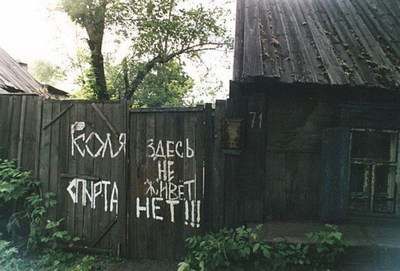 КОЛЯ
СПИРТА
ЗДЕСЬ
НЕ
ЖИВЕТ
НЕТ!!!
71